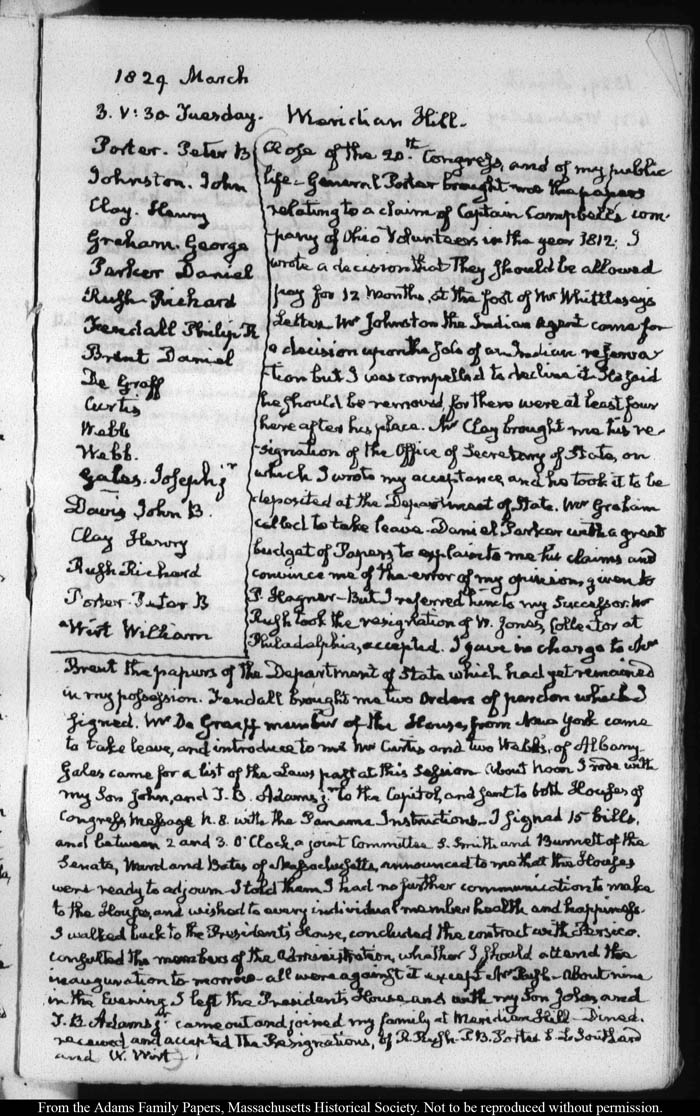 1829 March
3. V:30 Tuesday. Meridian Hill.
Porter. Peter B
Johnston. John
Clay. Henry
Graham. George
Parker Daniel
Rush Richard
Fendall Philip R
Brent Daniel
De Graff
Curtis
Webb
Webb.
Gales. Joseph jr
Davis John B.
Clay Henry
Rush Richard
Porter. Peter B
Wirt William
Close of the 20th Congress, and of my public
life – General Porter brought me the papers
relating to a claim of Captain Campbell's com-
pany of Ohio Volunteers in the year 1812. I
wrote a decision that They should be allowed
pay for 12 Months, at the foot of Mr Whittlesey's
Letter. Mr Johnston the Indian Agent came for
a decision upon the sale of an Indian reserva
tion but I was compelled to decline it. He said
he should be removed, for there were at least four
here after his place. Mr Clay brought me his re-
signation of the Office of Secretary of State, on
which I wrote my acceptance, and he took it to be
deposited at the Department of State. Mr Graham
called to take leave. Daniel Parker with a great
budget of Papers, to explain to me his claims and
convince me of the error of my opinion, given to
P. Hagner – But I referred him to my Successor. Mr
Rush took the resignation of W. Jones, Collector at
Philadelphia, accepted. I gave in charge to Mr
Brent the papers of the Department of State which had yet remained
in my possession. Fendall brought me two Orders of pardon which I
signed. Mr De Graeff member of the House, from New York came
to take leave, and introduce to me Mr Curtis and two Webb's, of Albany
Gales came for a list of the Laws past at this Session. About Noon I rode with
my Son John, and T. B. Adams jr to the Capitol, and sent to both Houses of
Congress Message N. 8. with the Panama Instructions – I signed 15 bills,
and between 2 and 3. O'Clock, a joint Committee S. Smith and Burnett of the
Senate, Ward and Bates of Massachusetts, announced to me that the Houses
were ready to adjourn – I told them I had no further communication to make
to the Houses, and wished to every individual member health and happiness.
I walked back to the President's House, concluded the contract with Persico.
consulted the members of the Administration, whether I should attend the
inauguration to morrow all were against it except Mr Rush – About nine
in the Evening I left the President's House and with my Son John, and
T. B. Adams jr came out and joined my family at Meridian Hill – Dined.
received and accepted The Resignations, of R. Rush. P. B. Porter S. L. Southard
and W. Wirt
From the Adams Family Papers, Massachusetts Historical Society. Not to be reproduced without permission.